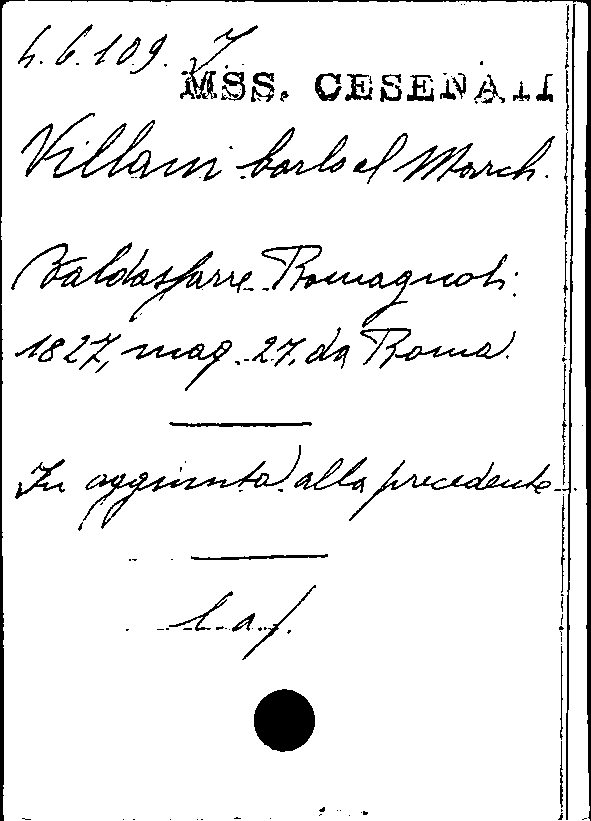 4.6.109.7
MSS. CESENATI
Villani Carlo al March.
Baldassarre Romagnoli.
1827, mag. 27. da Roma.
In aggiunta alla precedente